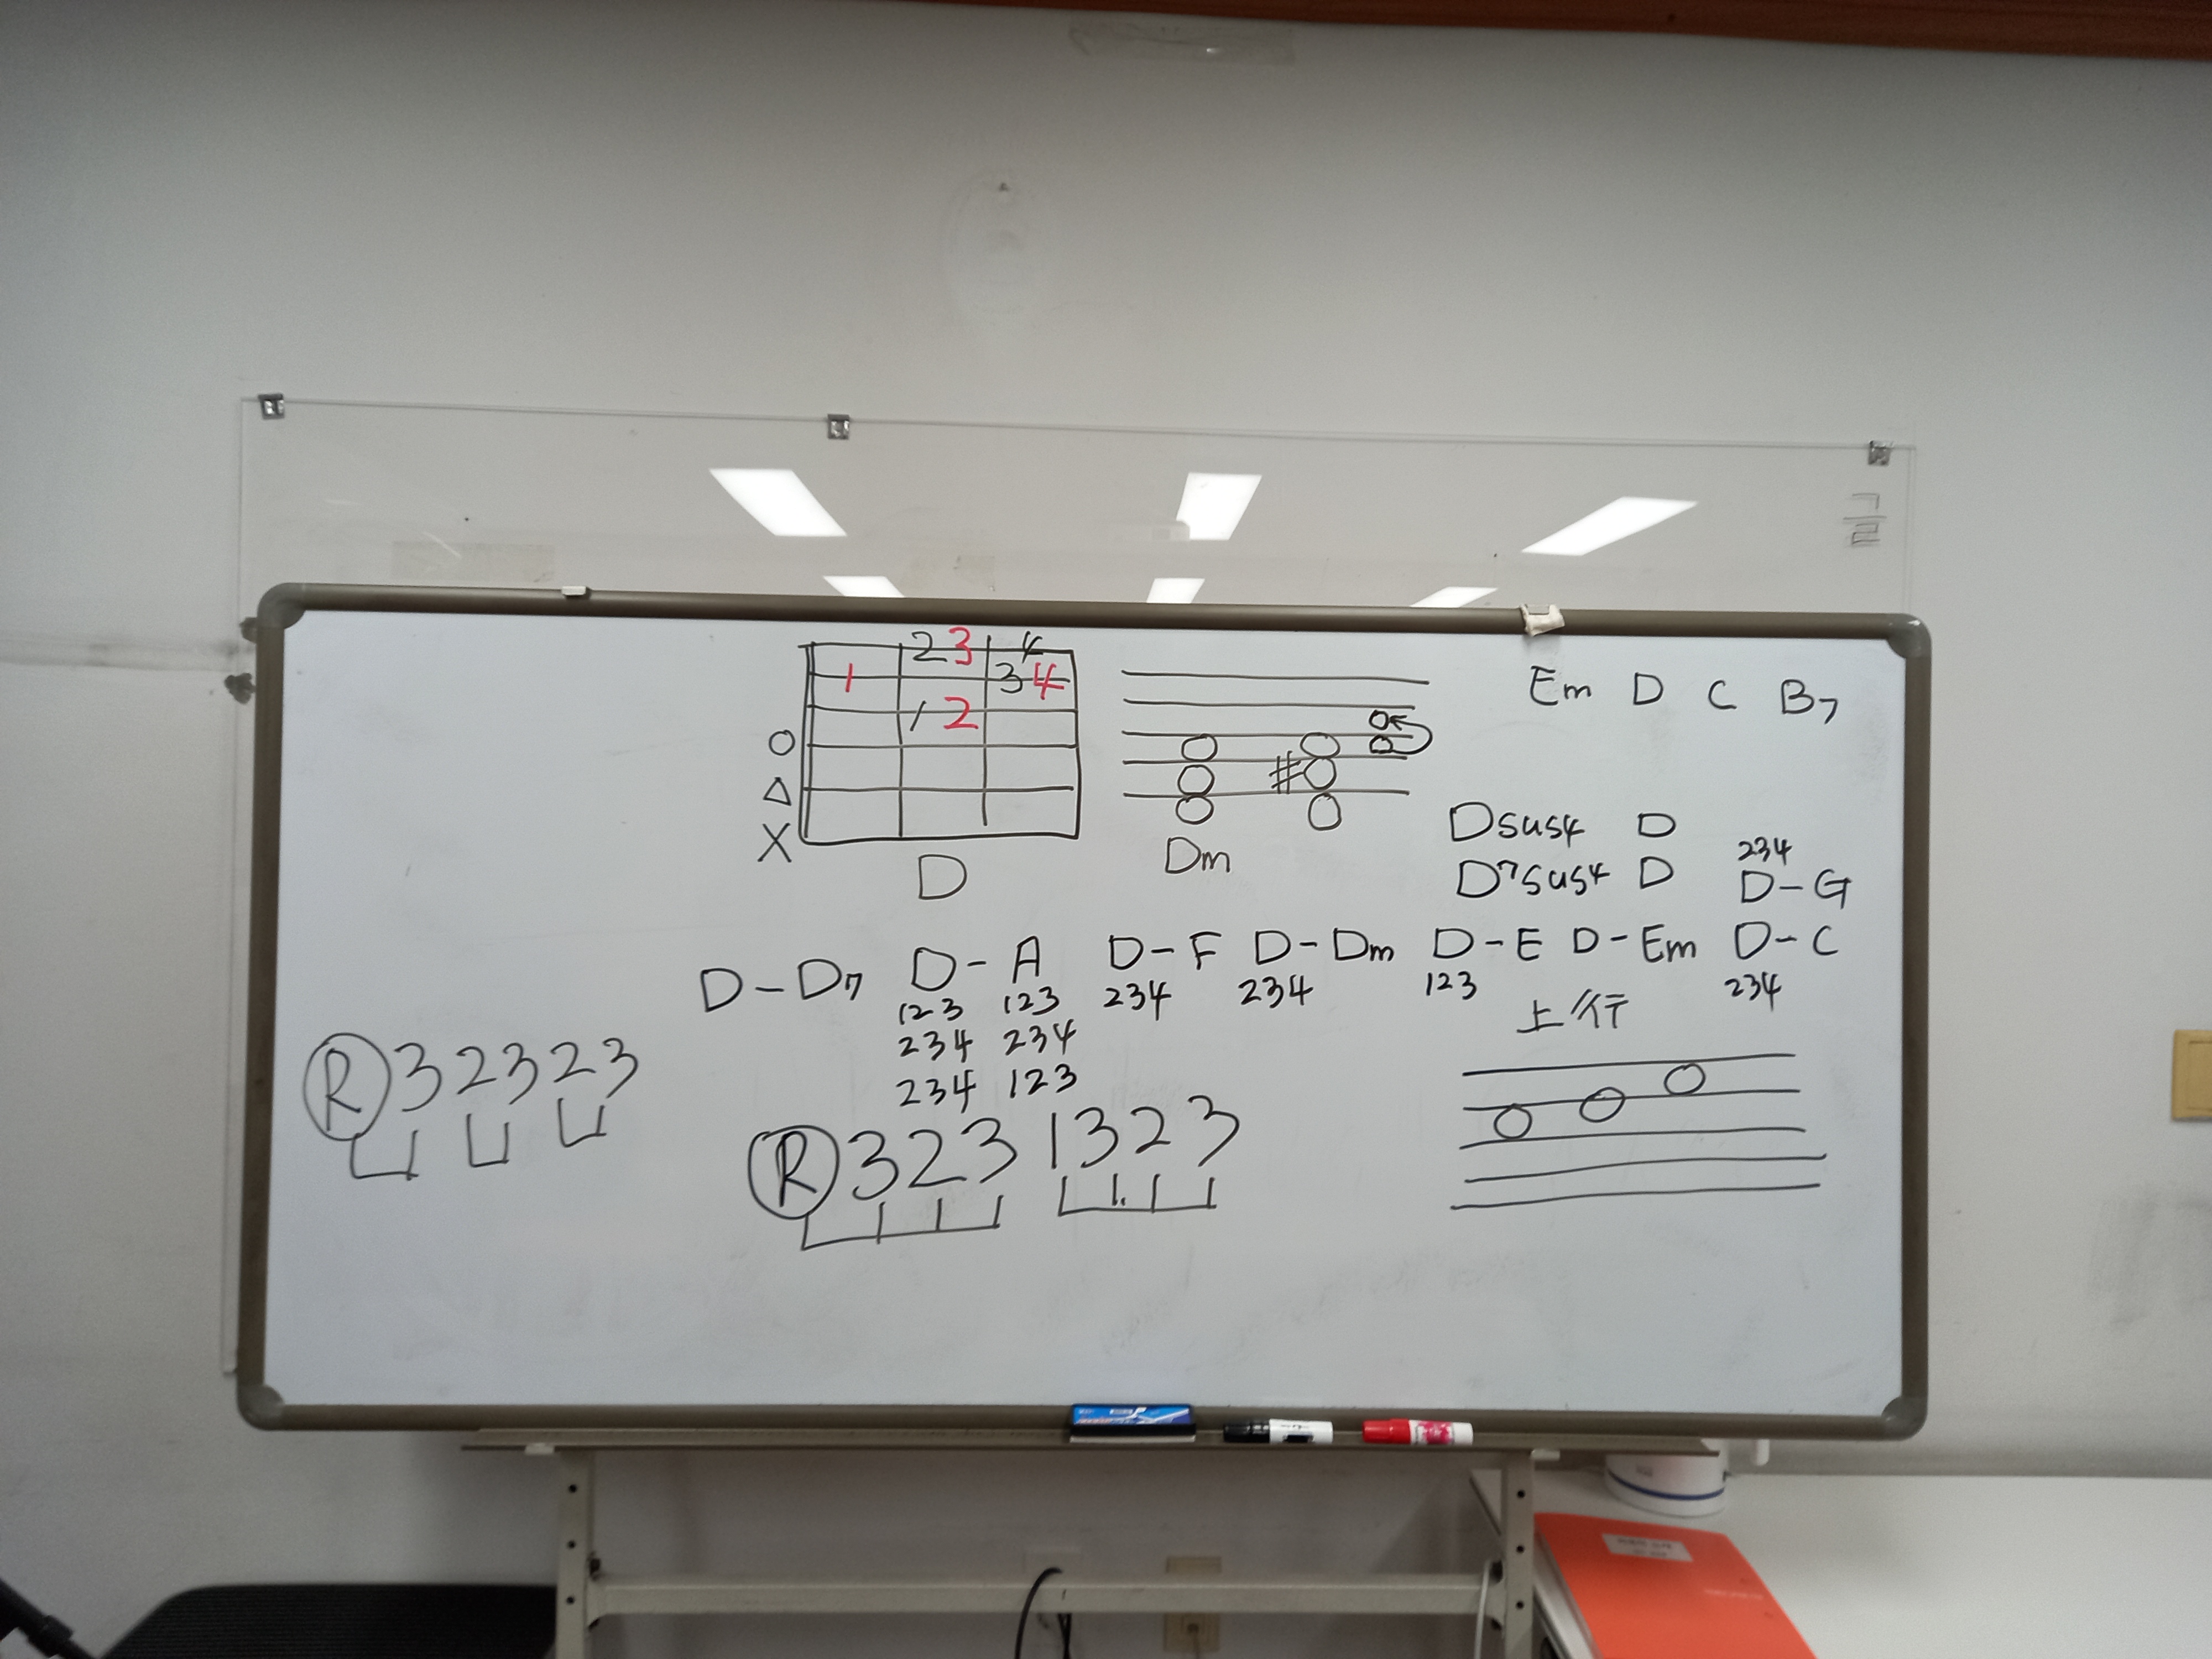 2 3 4
1 3 4
1 2
O
△
X
D
Dm
#
Em D C B7
Dsus4 D
D7sus4 D
234
D-G
D-D7 D-A D-F D-Dm D-E D-Em D-C
123 123 234 234 123 234
234 234
234 123
上行
R 3 2 3 2 3
R 3 2 3 1 3 2 3